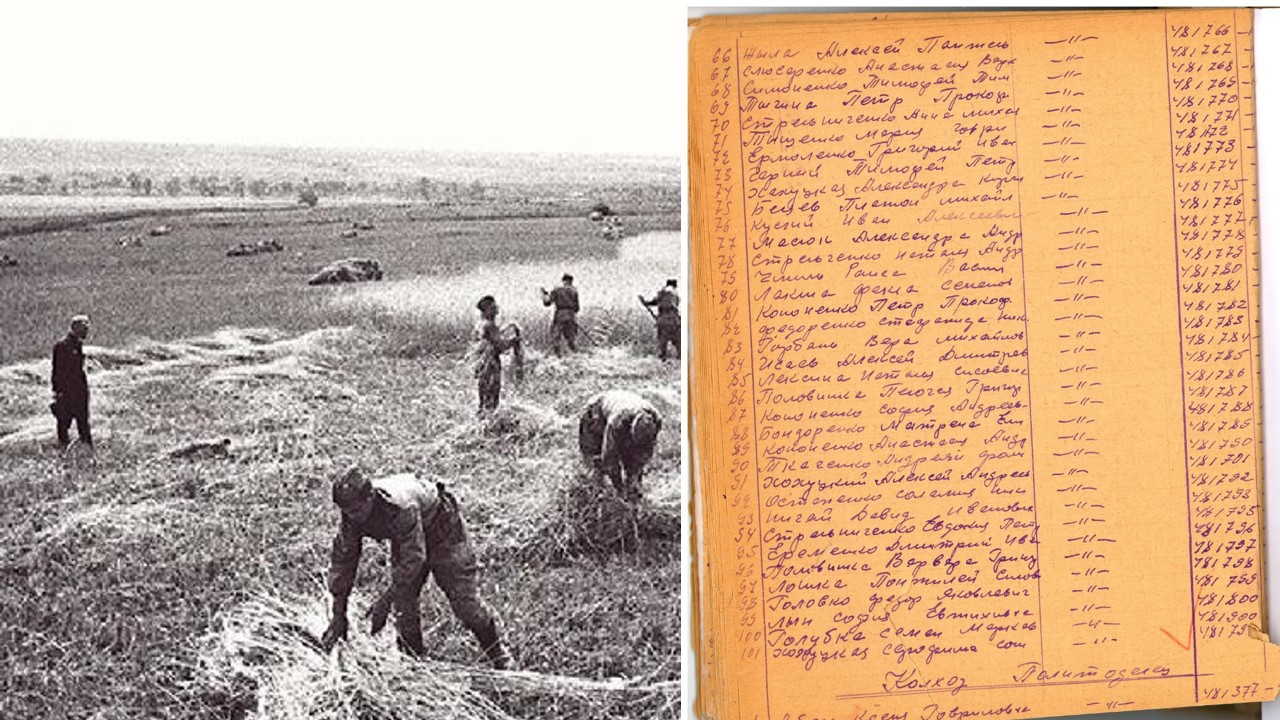 66 Шыла Алексей —"— 481766
67 Слюсаренко Анастасия —"— 481767
68 Симоненко Тимофей Тим —"— 481768
69 Тычина Петр Прокоф —"— 481769
70 Стрельниченко Анна Михай —"— 481770
71 Тищенко Мария Гаври —"— 481771
72 Ермоленко Григорий Иван —"— 481772
73 Черний Тимофей Петр —"— 481773
74 Хохуцкая Александра Кузм —"— 481774
75 Бещев Платон Михайл —"— 481775
76 Куций Иван Алексеевич —"— 481776
77 Масюк Александра Андр —"— 481777
78 Стрельченко Наталия Андр —"— 481778
79 Чмиль Раиса Васил —"— 481779
80 Лакиза Фекла Семенов —"— 481780
81 Кононенко Петр Прокоф —"— 481781
82 Федоренко Стефанида Ник —"— 481782
83 Горбань Вера Михайлов —"— 481783
84 Исаев Алексей Дмитрев —"— 481784
85 Лексина Наталия —"— 481785
86 Половинка Пелагея Григор —"— 481786
87 Кононенко София Андреев —"— 481787
88 Бондаренко Матрена Ем —"— 481788
89 Кононенко Анастасия Андр —"— 481789
90 Ткаченко Андрей —"— 481790
91 Хохуцкий Алексей Андреев —"— 481791
92 Остапенко Ник —"— 481792
93 Нигай Давид Иванович —"— 481793
94 Стрельниченко Евдокия Петр —"— 481795
95 Еременко Дмитрий Иван —"— 481796
96 Половинка Варвара Григор —"— 481797
97 Лошка —"— 481798
98 Головко Федор Яковлевич —"— 481799
99 Лын София —"— 481800
100 Голубка Семен Марков —"— 481900
101 Хохуцкая —"—
Колхоз Политотделец
Гавриловна —"— 481377